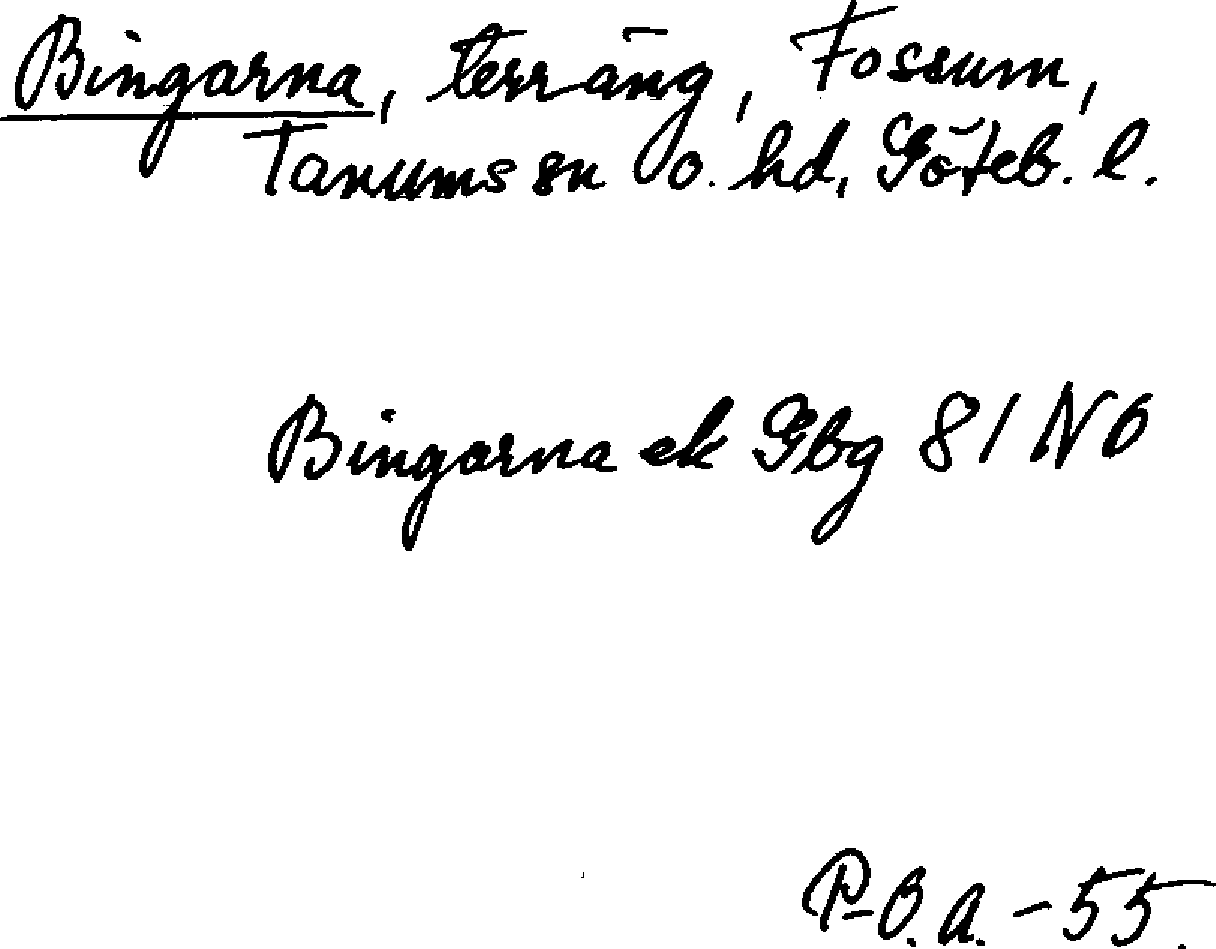 Bingarna, terräng, Fossum,
Tanums sn o. hd, Göteb. l.
Bingarna ek Gbg 81 NO
P-O.A.-55.